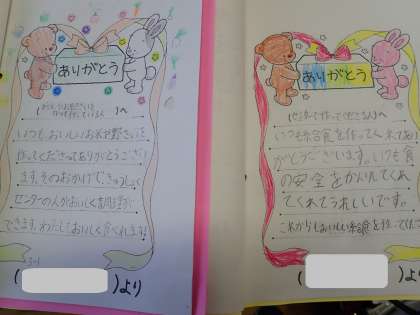 ありがとう
へ
いつも、おいしいお米や野さいを
作ってくださってありがとうござい
ます。そのおかげできゅうしょく
センターの人がおいしく調理が
できます。わたしもおいしく食べれます!
3-1
より
ありがとう
へ
いつも給食を作ってくれてあり
がとうございます。いつも食
の安全をかんがえてくれ
てくれてうれしいです。
これからもおいしい給食を作って
より